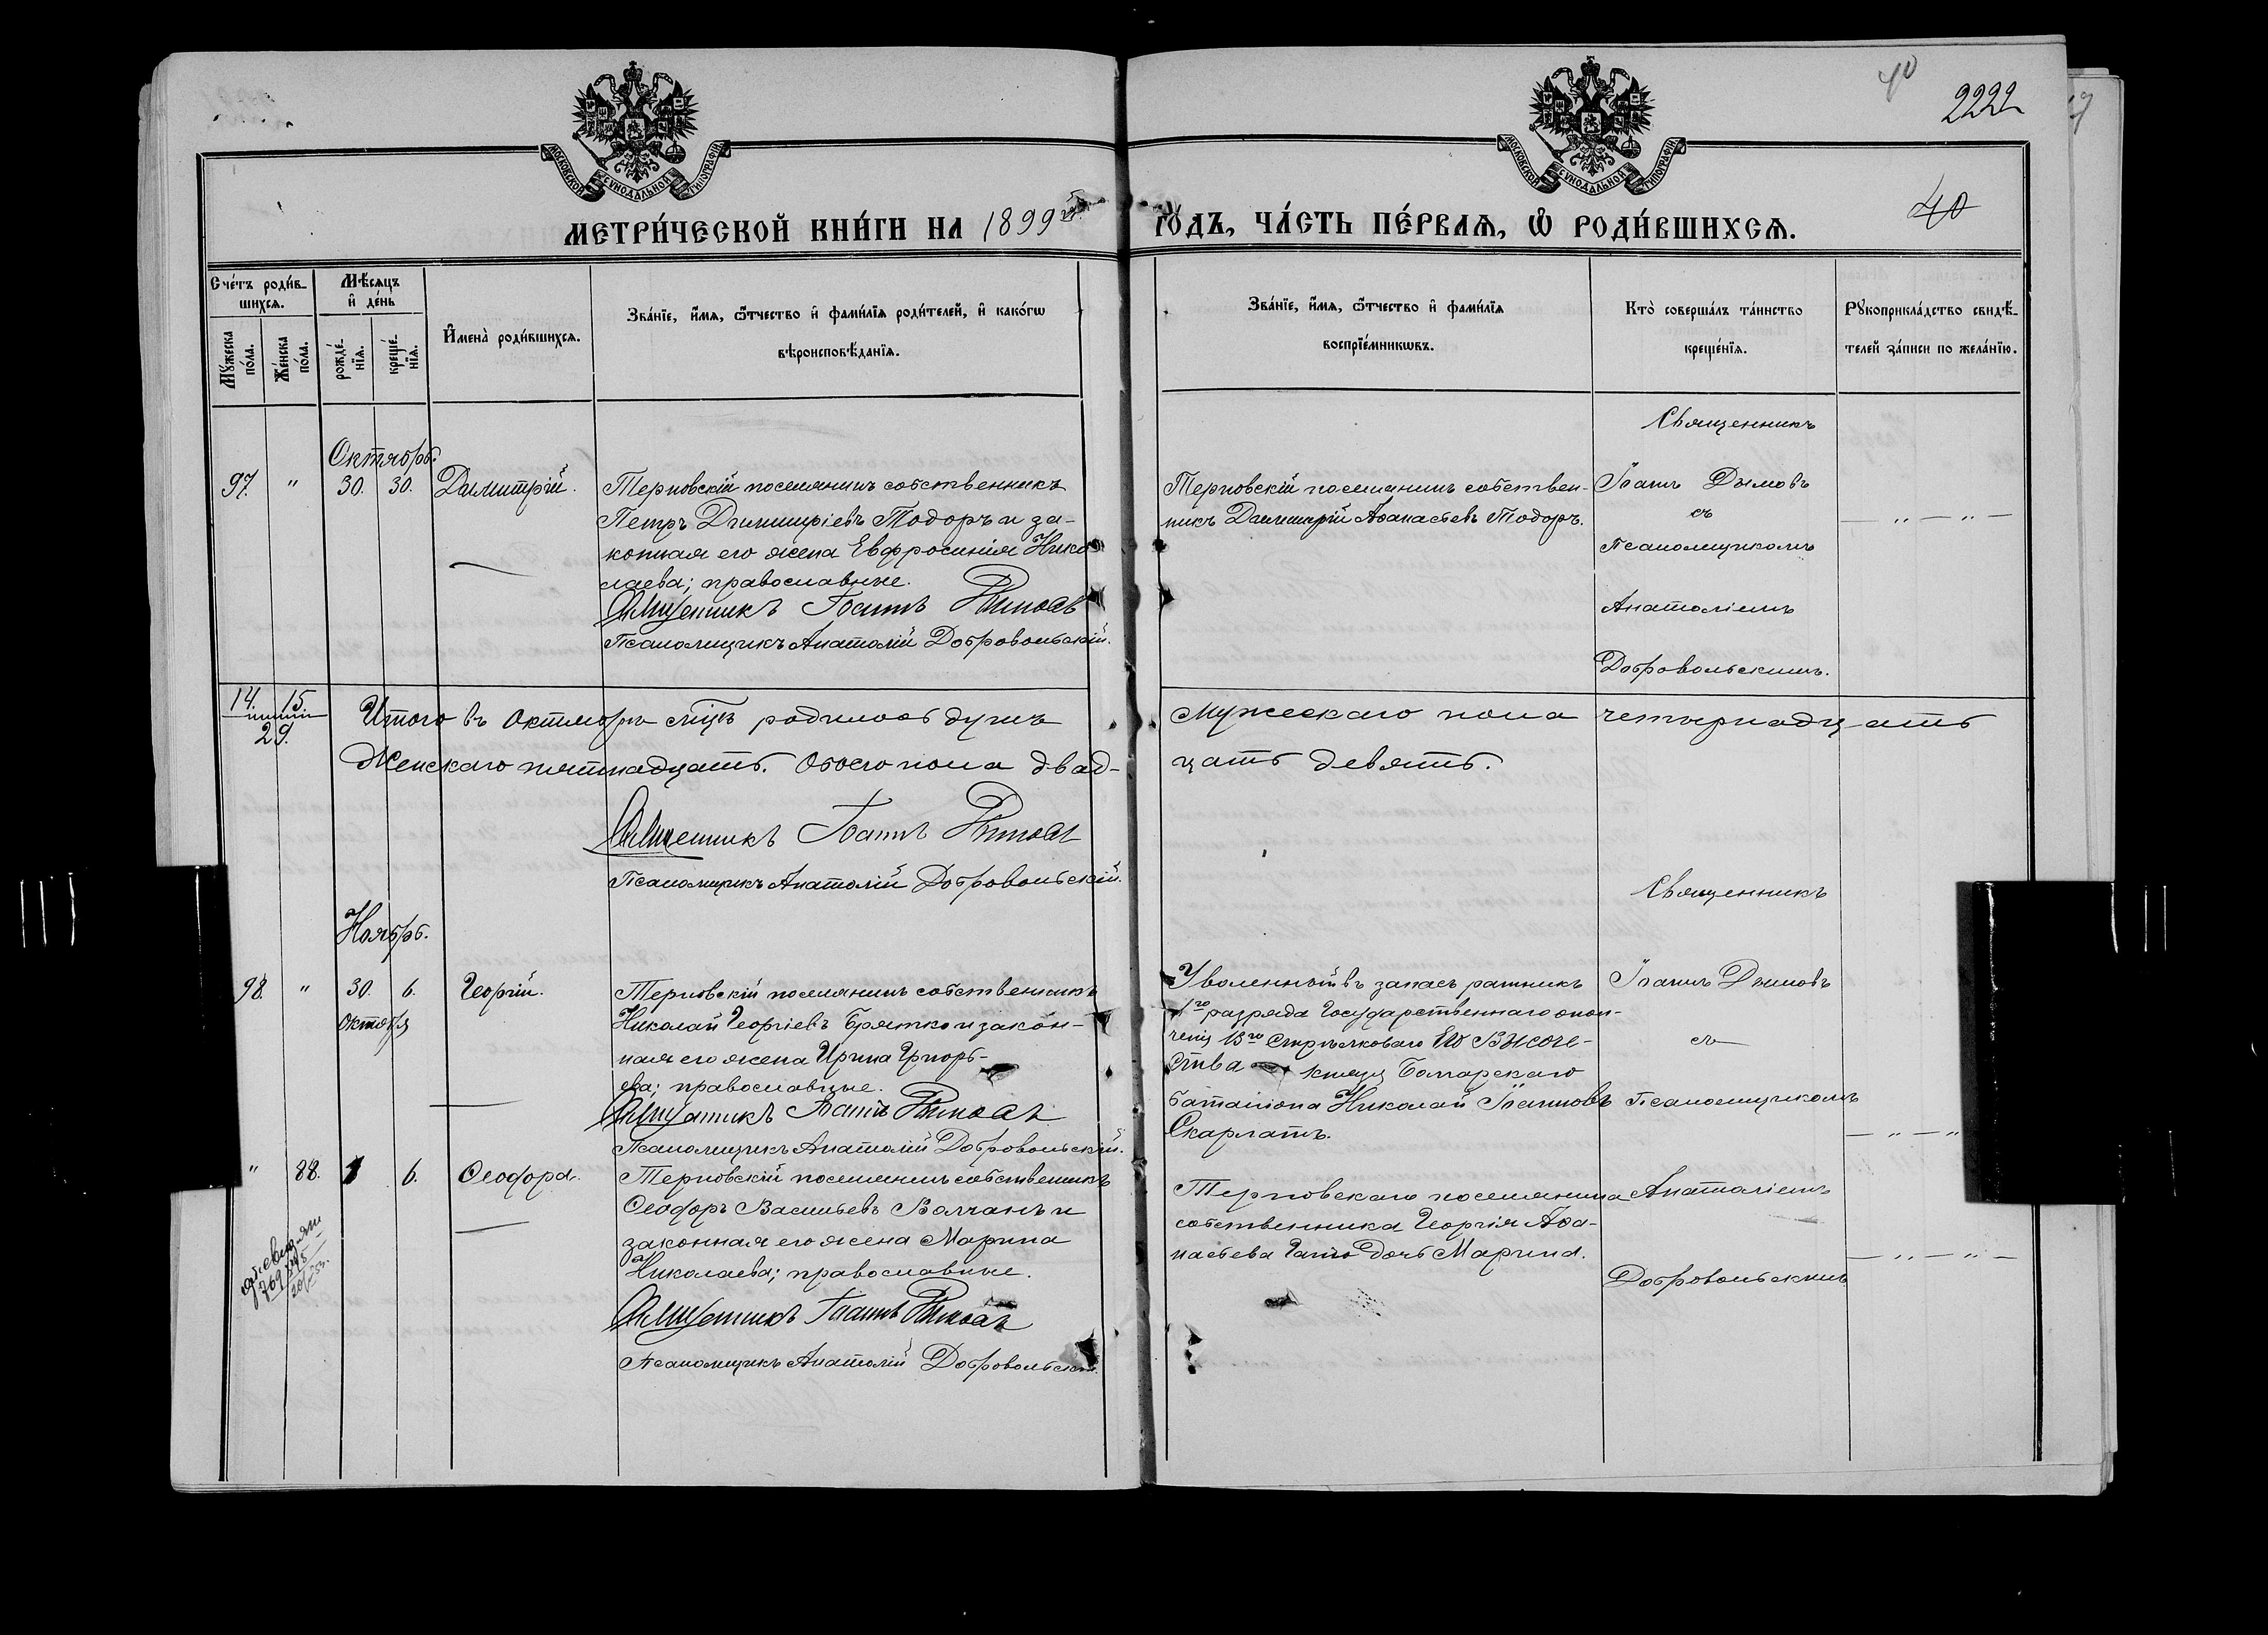 40
2222
40
МОСКОВСКОЙ СѴНОДАЛЬНОЙ ТИПОГРАФІИ
МОСКОВСКОЙ СѴНОДАЛЬНОЙ ТИПОГРАФІИ
МЕТРИ́ЧЕСКОЙ КНИ́ГИ НА 1899 ГО́ДЪ, ЧА́СТЬ ПЕ́РВАѦ, Ѡ РОДИ́ВШИХСѦ.
Сче́тъ роди́в-
шихсѧ.
Мꙋ́жеска по́ла.
Же́нска по́ла.
Мѣ́сѧцъ
и҆ де́нь
рожде́-
нїѧ.
креще́-
нїѧ.
И҆мена̀ роди́вшихсѧ.
Зва́нїе, и҆́мѧ, ѻ҆́тчество и҆ фами́лїѧ роди́телей, и҆ како́гѡ
вѣроисповѣ́данїѧ.
Зва́нїе, и҆́мѧ, ѻ҆́тчество и҆ фами́лїѧ
воспрїе́мникѡвъ.
Кто̀ соверша́лъ та́инство
креще́нїѧ.
Рꙋкоприкла́дство свидѣ́-
телей за́писи по жела́нїю.
Октябрь.
97. " 30. 30. Димитрій.
Терновскій поселянинъ собственникъ
Петръ Димитріевъ Тодоръ и за-
конная его жена Евфросинія Нико-
лаева; православные.
Священникъ Іоаннъ Дымовъ
Псаломщикъ Анатолій Добровольскій.
Терновскій поселянинъ собствен-
никъ Димитрій Аѳанасьевъ Тодоръ.
Священникъ
Іоаннъ Дымовъ
съ
Псаломщикомъ
Анатоліемъ
Добровольскимъ.
— " — " —
14. 15.
29.
Итого въ Октябрѣ м-цѣ родилось душъ мужескаго пола четырнадцать
Женскаго пятнадцать. Обоего пола двад- цать девять.
Священникъ Іоаннъ Дымовъ
Псаломщикъ Анатолій Добровольскій.
Ноябрь.
98. " 30. 6. Георгій.
Октября
Терновскій поселянинъ собственникъ
Николай Георгіевъ Братко и закон-
ная его жена Ирина Григорь-
ева; православные.
Священникъ Іоаннъ Дымовъ
Псаломщикъ Анатолій Добровольскій.
Уволенный въ запасъ ратникъ
1го разряда Государственнаго опол-
ченія 13го Стрѣлковаго Его Высоче-
ства князя Болгарскаго
баталіона Николай Іоанновъ
Скарлатъ.
Священникъ
Іоаннъ Дымовъ
съ
Псаломщикомъ
— " — "
" 88. 1 6. Ѳеодора.
Терновскій поселянинъ собственникъ
Ѳеодоръ Васильевъ Волчанъ и
законная его жена Марина
Николаева; православные.
Священникъ Іоаннъ Дымовъ
Псаломщикъ Анатолій Добровольскій.
Терновскаго поселянина
собственника Георгія Аѳа-
насьева дочь Марина.
Анатоліемъ
Добровольскимъ
— " — " —